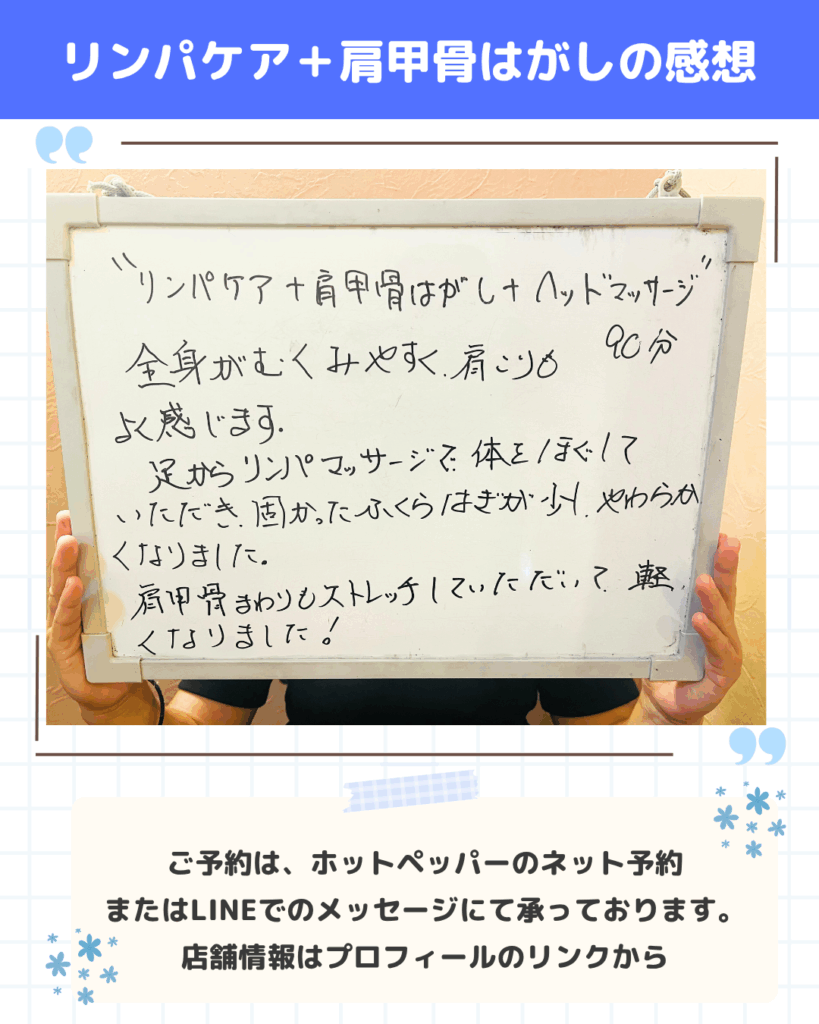 リンパケア＋肩甲骨はがしの感想
"リンパケア＋肩甲骨はがし＋ヘッドマッサージ"
90分
全身がむくみやすく、肩こりも
よく感じます。
足からリンパマッサージで、体をほぐして
いただき、固かったふくらはぎが少し、やわらか
くなりました。
肩甲骨まわりもストレッチしていただいて、軽
くなりました！
ご予約は、ホットペッパーのネット予約
またはLINEでのメッセージにて承っております。
店舗情報はプロフィールのリンクから